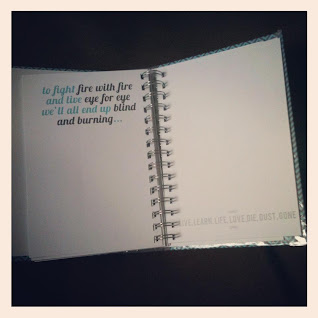 to fight fire with fire
and live eye for eye
we'll all end up blind
and burning...
LIVE.LEARN.LIFE.LOVE.DIE.DUST.GONE